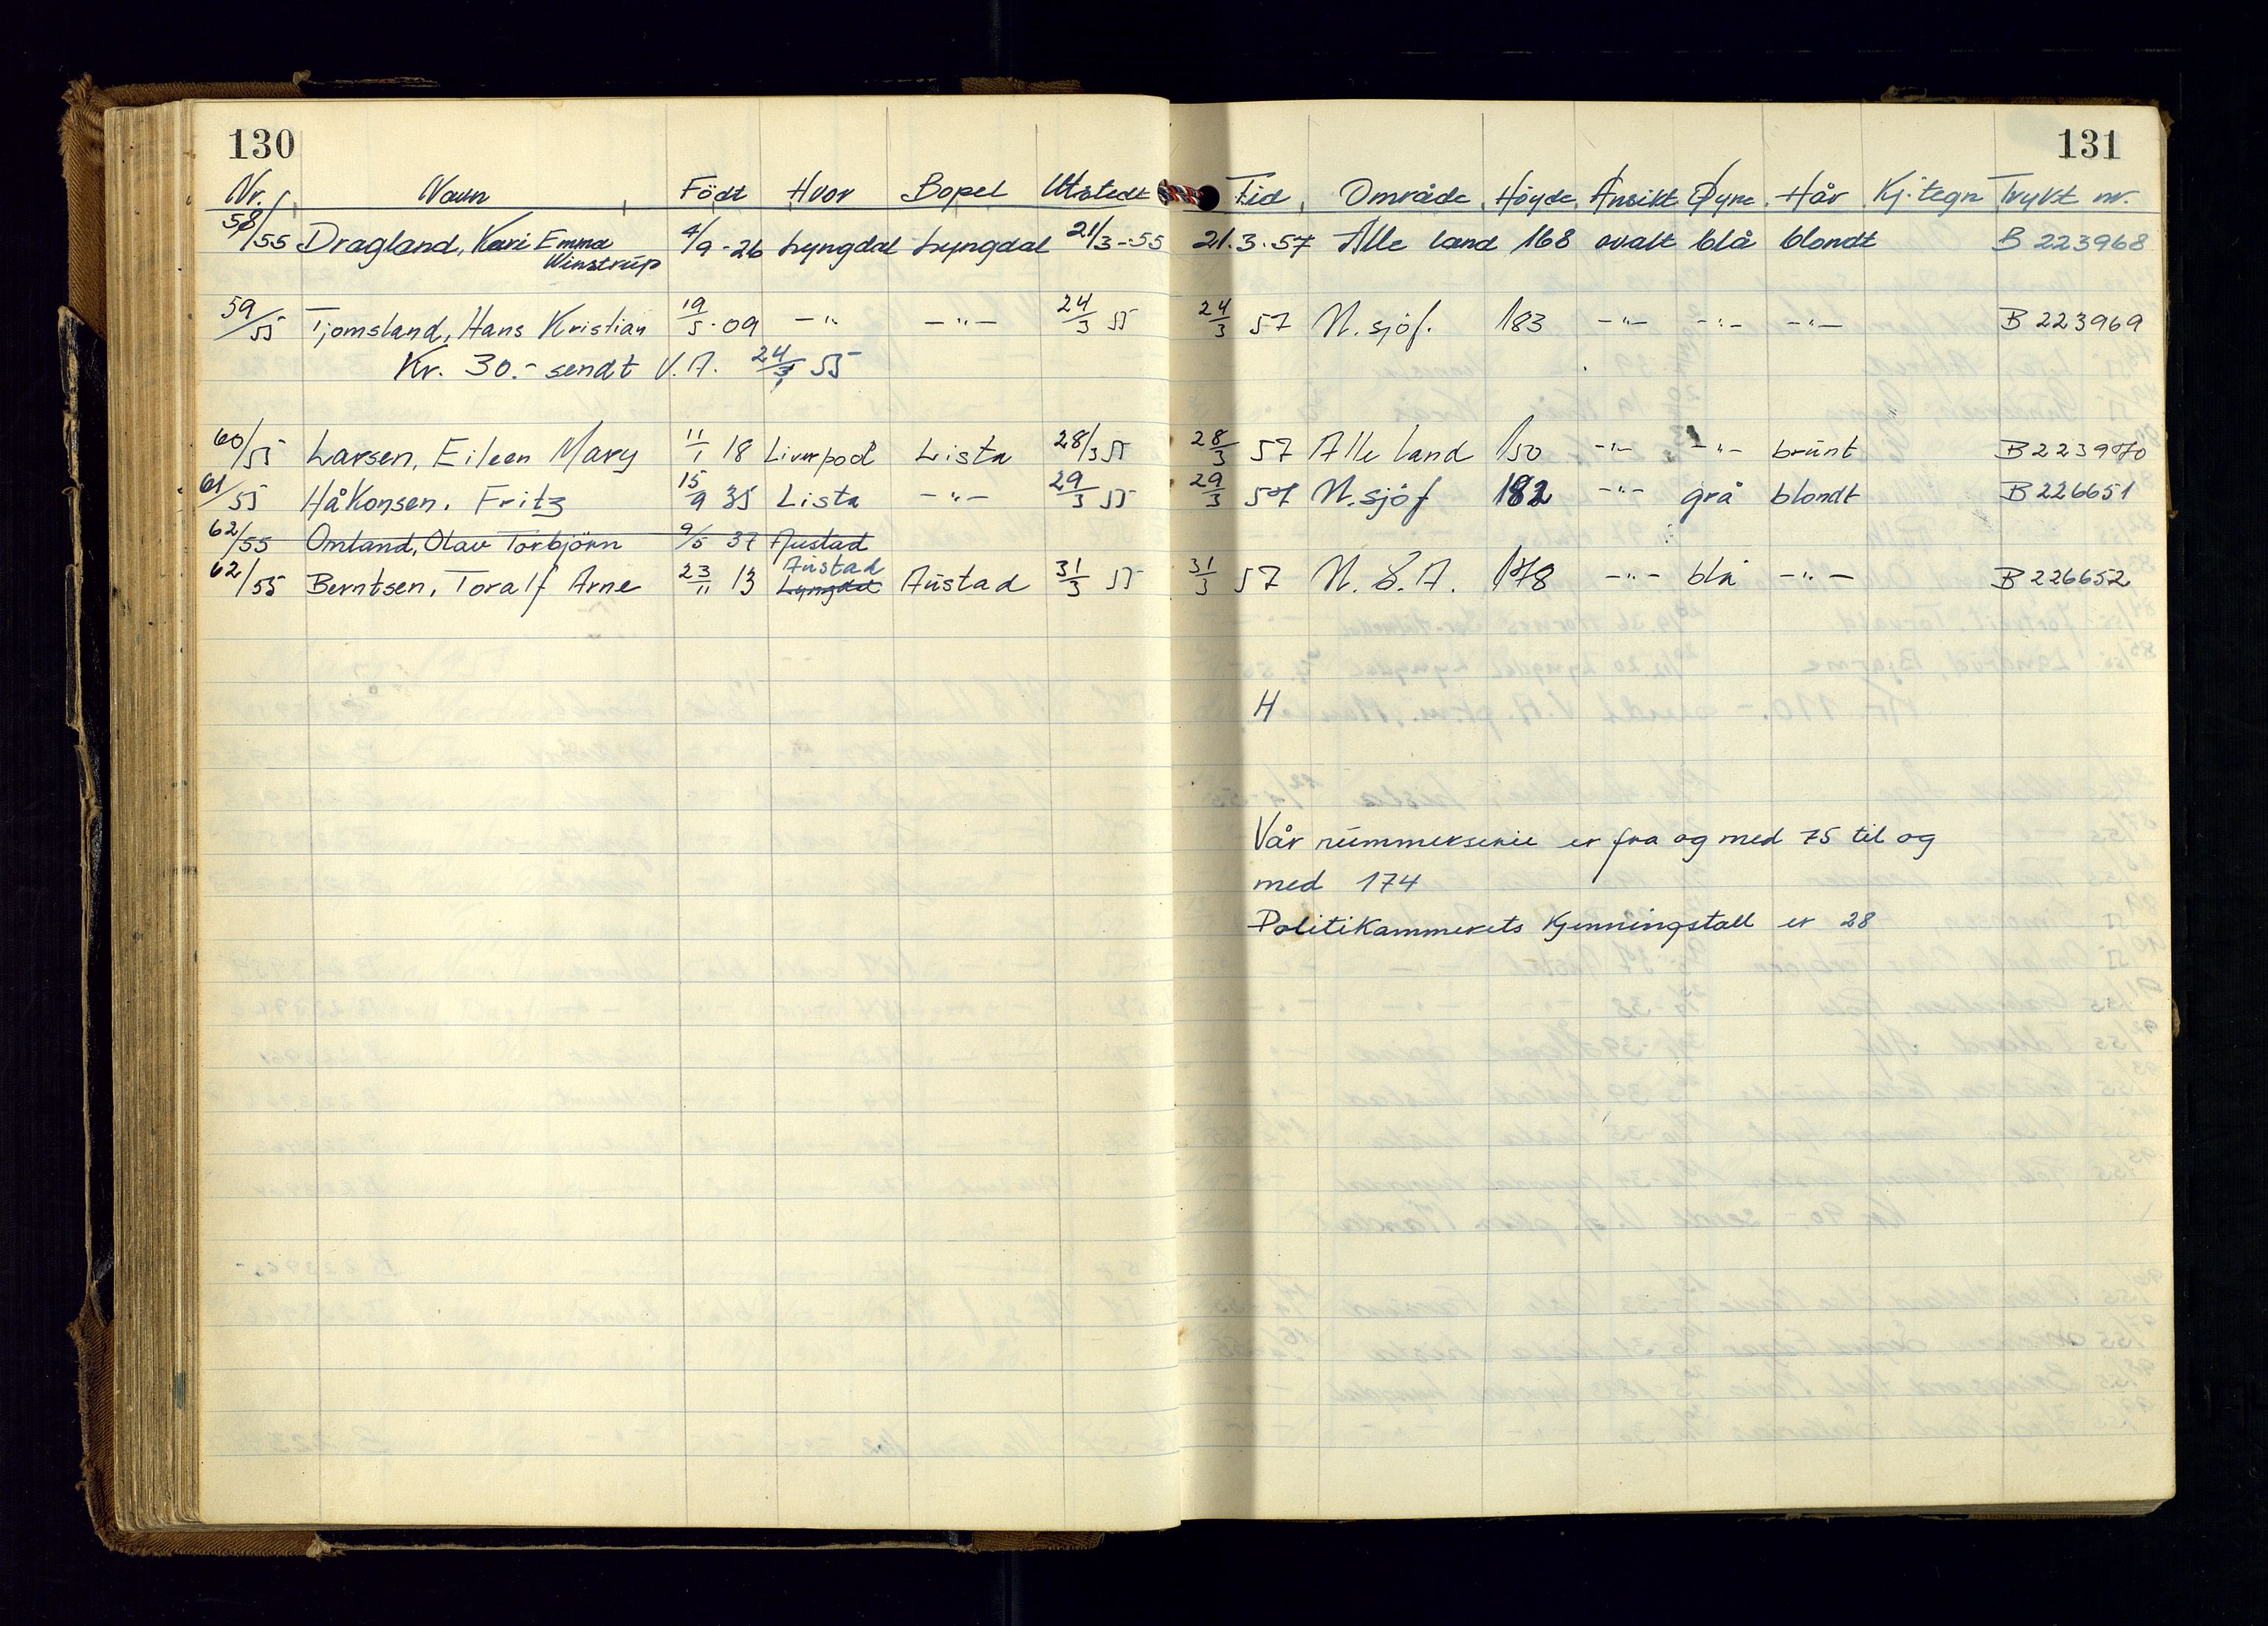 130
131
Nr. Navn Födt Hvor Bopel Utstedt Tid Område Höyde Ansikt Øyne Hår Kj.tegn Trykt nr.
58/55 Dragland, Kari Emma 4/9-26 Lyngdal Lyngdal 21/3-55 21.3.57 Alle land 168 ovalt blå blondt B 223968
Winstrup
59/55 Tjomsland, Hans Kristian 19/5-09 -"- -"- 24/3 55 24/3 57 N.sjöf. 183 -"- -"- -"- B 223969
Kr. 30.- sendt V.A. 24/3 55
60/55 Larsen, Eileen Mary 11/1 18 Liverpool Lista 28/3 55 28/3 57 Alle land 150 -"- -"- brunt B 223970
61/55 Håkonsen, Fritz 15/9 35 Lista -"- 29/3 55 29/3 57 N.sjöf 182 -"- grå blondt B 226651
62/55 Omland, Olav Torbjörn 9/5 37 Austad
Austad
62/55 Berntsen, Toralf Arne 23/11 13 Lyngdal Austad 31/3 55 31/3 57 N.S.A. 178 -"- blå -"- B 226652
H
Vår nummerserie er fra og med 75 til og
med 174
Politikammerets Kjenningstall er 28